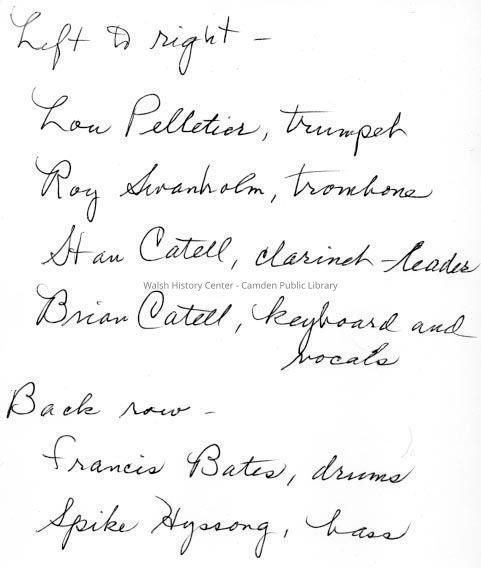 Left to right -
Lou Pelletier, trumpet
Roy Swanholm, trombone
Stan Catell, clarinet - leader
Walsh History Center - Camden Public Library
Brian Catell, keyboard and
vocals
Back row -
Francis Bates, drums
Spike Hyssong, bass